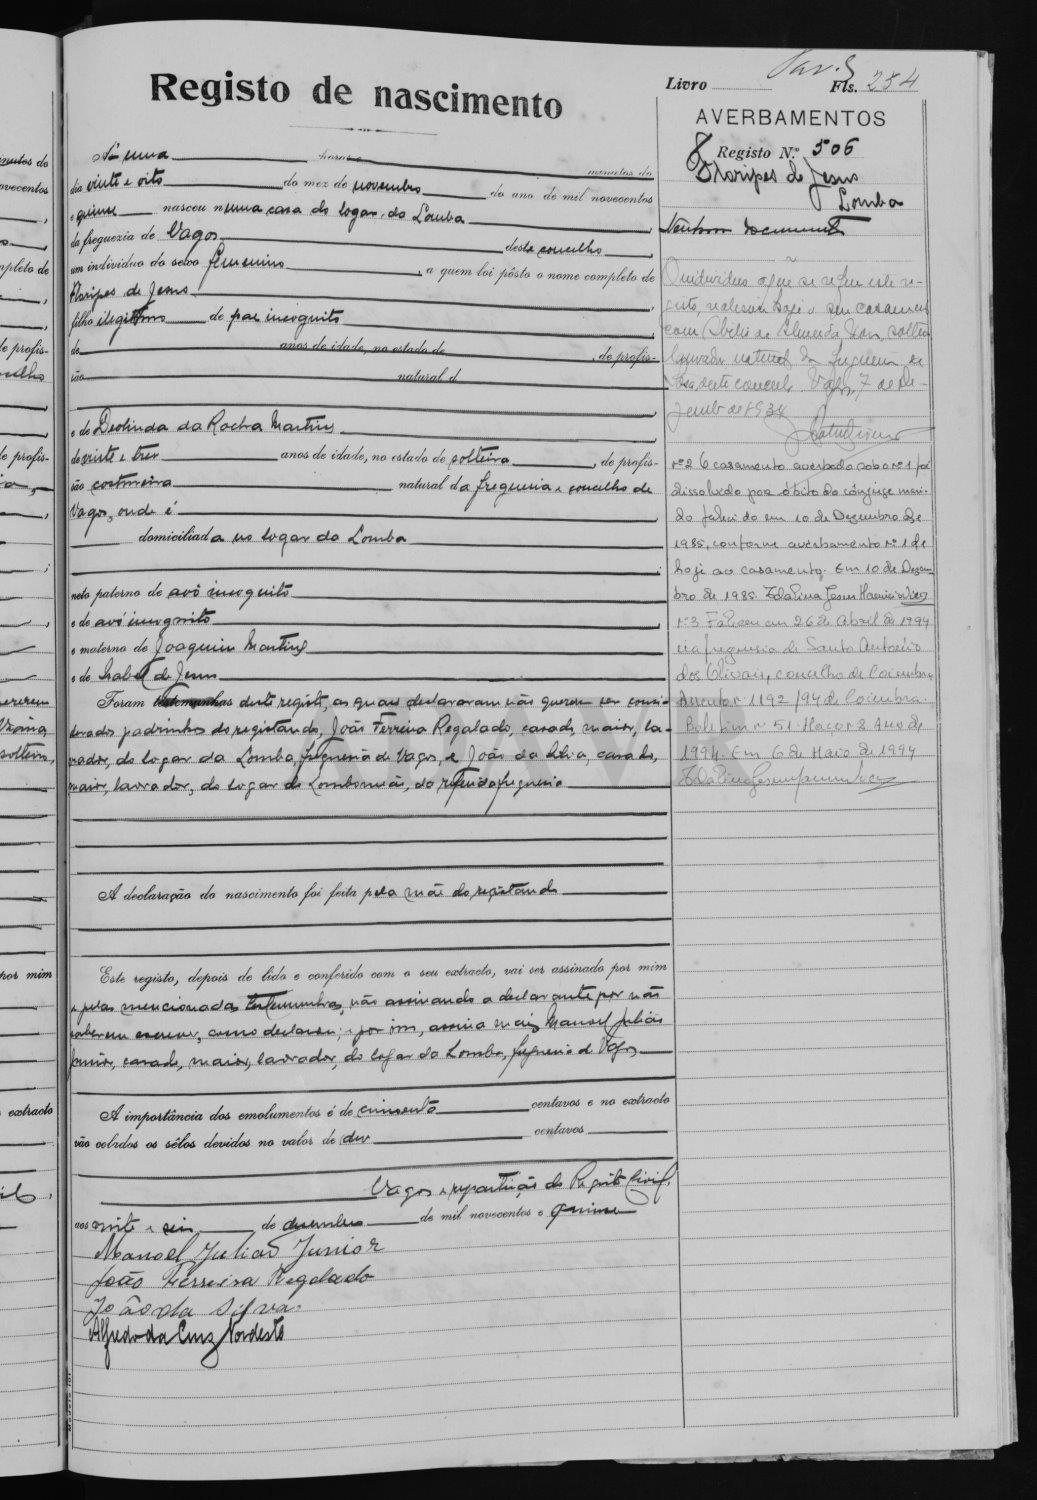 Registo de nascimento
Livro
Fls. 254
AVERBAMENTOS
Registo N.º 506
Floripes de Jesus
Lomba
Nenhum documento
Á uma horas minutos do
dia vinte e oito do mez de novembro do ano de mil novecentos
e quinze nasceu n uma casa do logar da Lomba
da freguezia de Vagos deste concelho
um individuo do sexo femenino, a quem foi pôsto o nome completo de
Floripes de Jesus
filho ilegitimo de pae incognito
de anos de idade, no estado de, de profis-
são natural d
e de Deolinda da Rocha Martins
de vinte e tres anos de idade, no estado de solteira, de profis-
são costureira natural da freguesia e concelho de
Vagos, onde é
domiciliada no logar da Lomba
neto paterno de avô incognito
e de avó incognita
e materno de Joaquim Martins
e de Isabel de Jesus
Foram testemunhas deste registo, as quaes declararam não querem ser consi-
derados padrinhos do registando, João Ferreira Regalado, casado, maior, la-
vrador, do logar da Lomba, freguesia de Vagos, e João da Silva, casado,
maior, lavrador, do logar de Lombomeão, da referida freguesia
A declaração do nascimento foi feita pela mãe do registando
Este registo, depois de lido e conferido com o seu extracto, vai ser assinado por mim
e pelas mencionadas testemunhas, não assinando a declarante por não
saber escrever, como declarou; e por im, assina mais Manoel Julião
Junior, casado, maior, lavrador, do logar da Lomba, freguesia de Vagos
A importância dos emolumentos é de cincoenta centavos e no extracto
vão colados os sêlos devidos no valor de dez centavos
Vagos e repartição do Registo Civil,
aos vinte e seis de dezembro de mil novecentos e quinze
Manoel Julião Junior
João Ferreira Regalado
João da Silva
Alfredo da Cruz Nordesto
O individuo a que se refere este re-
gisto, realisou hoje o seu casamento
com Abilio de Almeida, solteiro
lavrador natural da freguesia de
deste concelho. Vagos, 7 de De-
zembro de 1934
Nº 2 O casamento averbado sob o nº 1 foi
dissolvido por óbito do cônjuge mari-
do falecido em 10 de Dezembro de
1985, conforme averbamento nº 1 de
hoje ao casamento. Em 10 de Dezem-
bro de 1985. Idalina Jesus
Nº 3 Faleceu em 26 de Abril de 1994
na freguesia de Santo António
dos Olivais, concelho de Coimbra
Assento nº 1192/94 de Coimbra.
Boletim nº 51. Maço 2 Ano de
1994. Em 6 de Maio de 1994